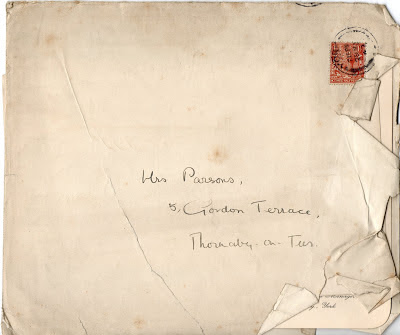 Mrs Parsons,
5, Gordon Terrace,
Thornaby-on-Tees.
York